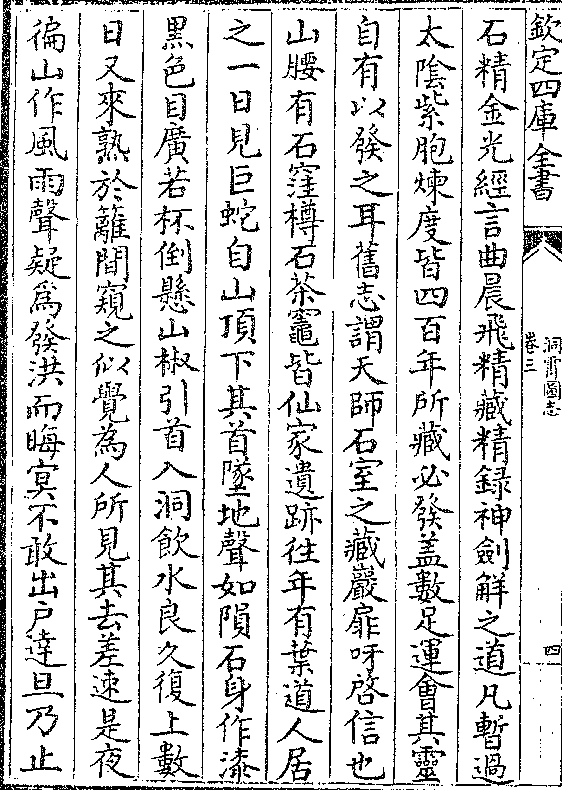 欽定四庫全書
洞霄圖志
卷三
四
石精金光經言曲晨飛精藏精録神劍解之道凡暫過
太陰紫胞煉度皆四百年所藏必發盖數足運會其靈
自有以發之耳舊志謂天師石室之藏巖扉呀啓信也
山腰有石窪樽石茶竈皆仙家遺跡往年有葉道人居
之一日見巨蛇自山頂下其首墜地聲如隕石身作漆
黒色目廣若杯倒懸山椒引首入洞飲水良久復上數
日又來熟於籬間窺之似覺為人所見其去差速是夜
徧山作風雨聲疑爲發洪而晦冥不敢出戶達旦乃止